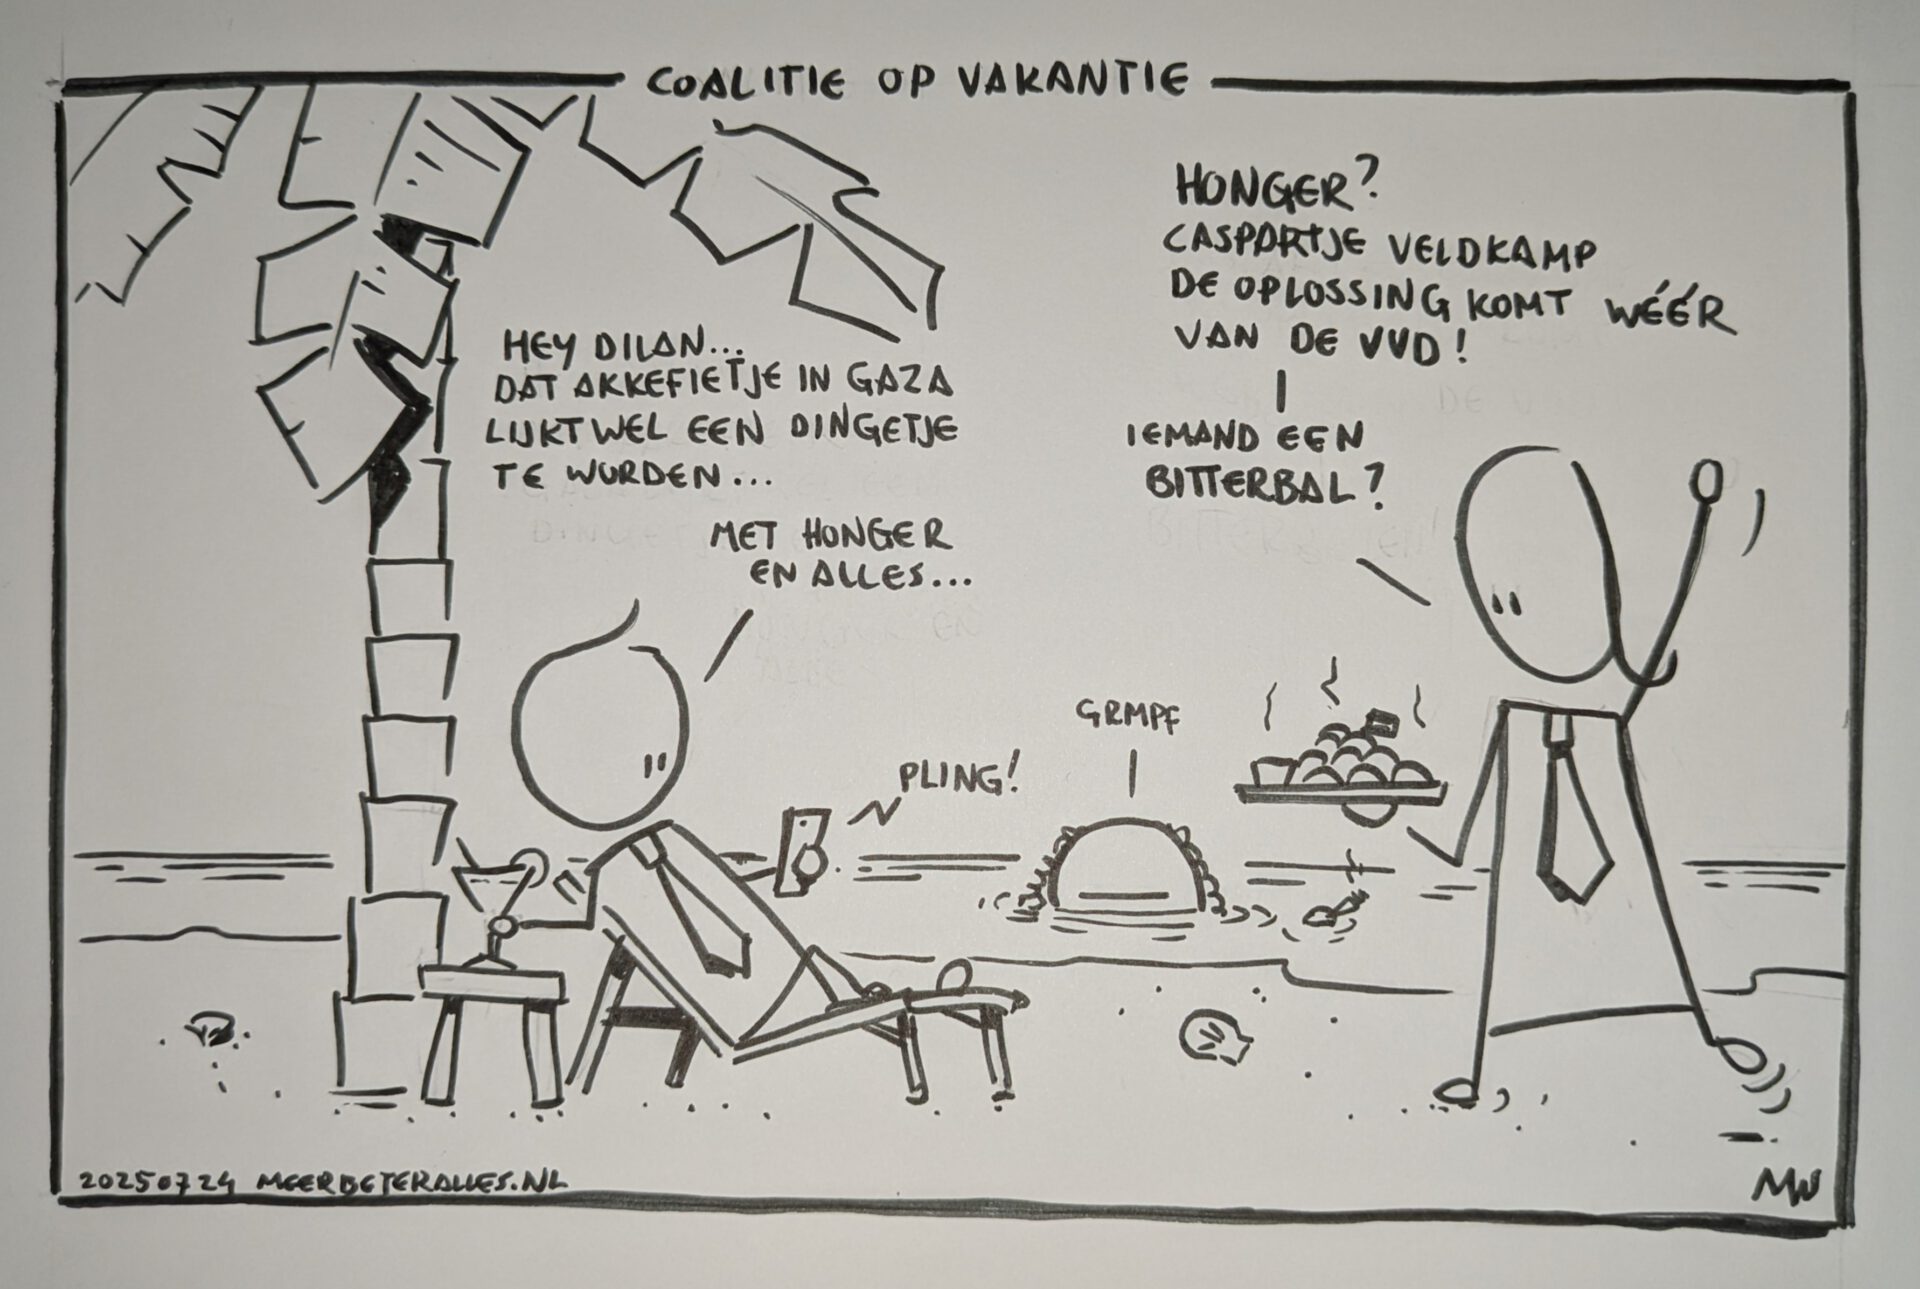 COALITIE OP VAKANTIE
HEY DILAN...
DAT AKKEFIETJE IN GAZA
LIJKT WEL EEN DINGETJE
TE WORDEN...
MET HONGER
EN ALLES...
PLING!
GRMPF
HONGER?
CASPARTJE VELDKAMP
DE OPLOSSING KOMT WÉÉR
VAN DE VVD!
IEMAND EEN
BITTERBAL?
20250724 MEERBETERALLES.NL
MW